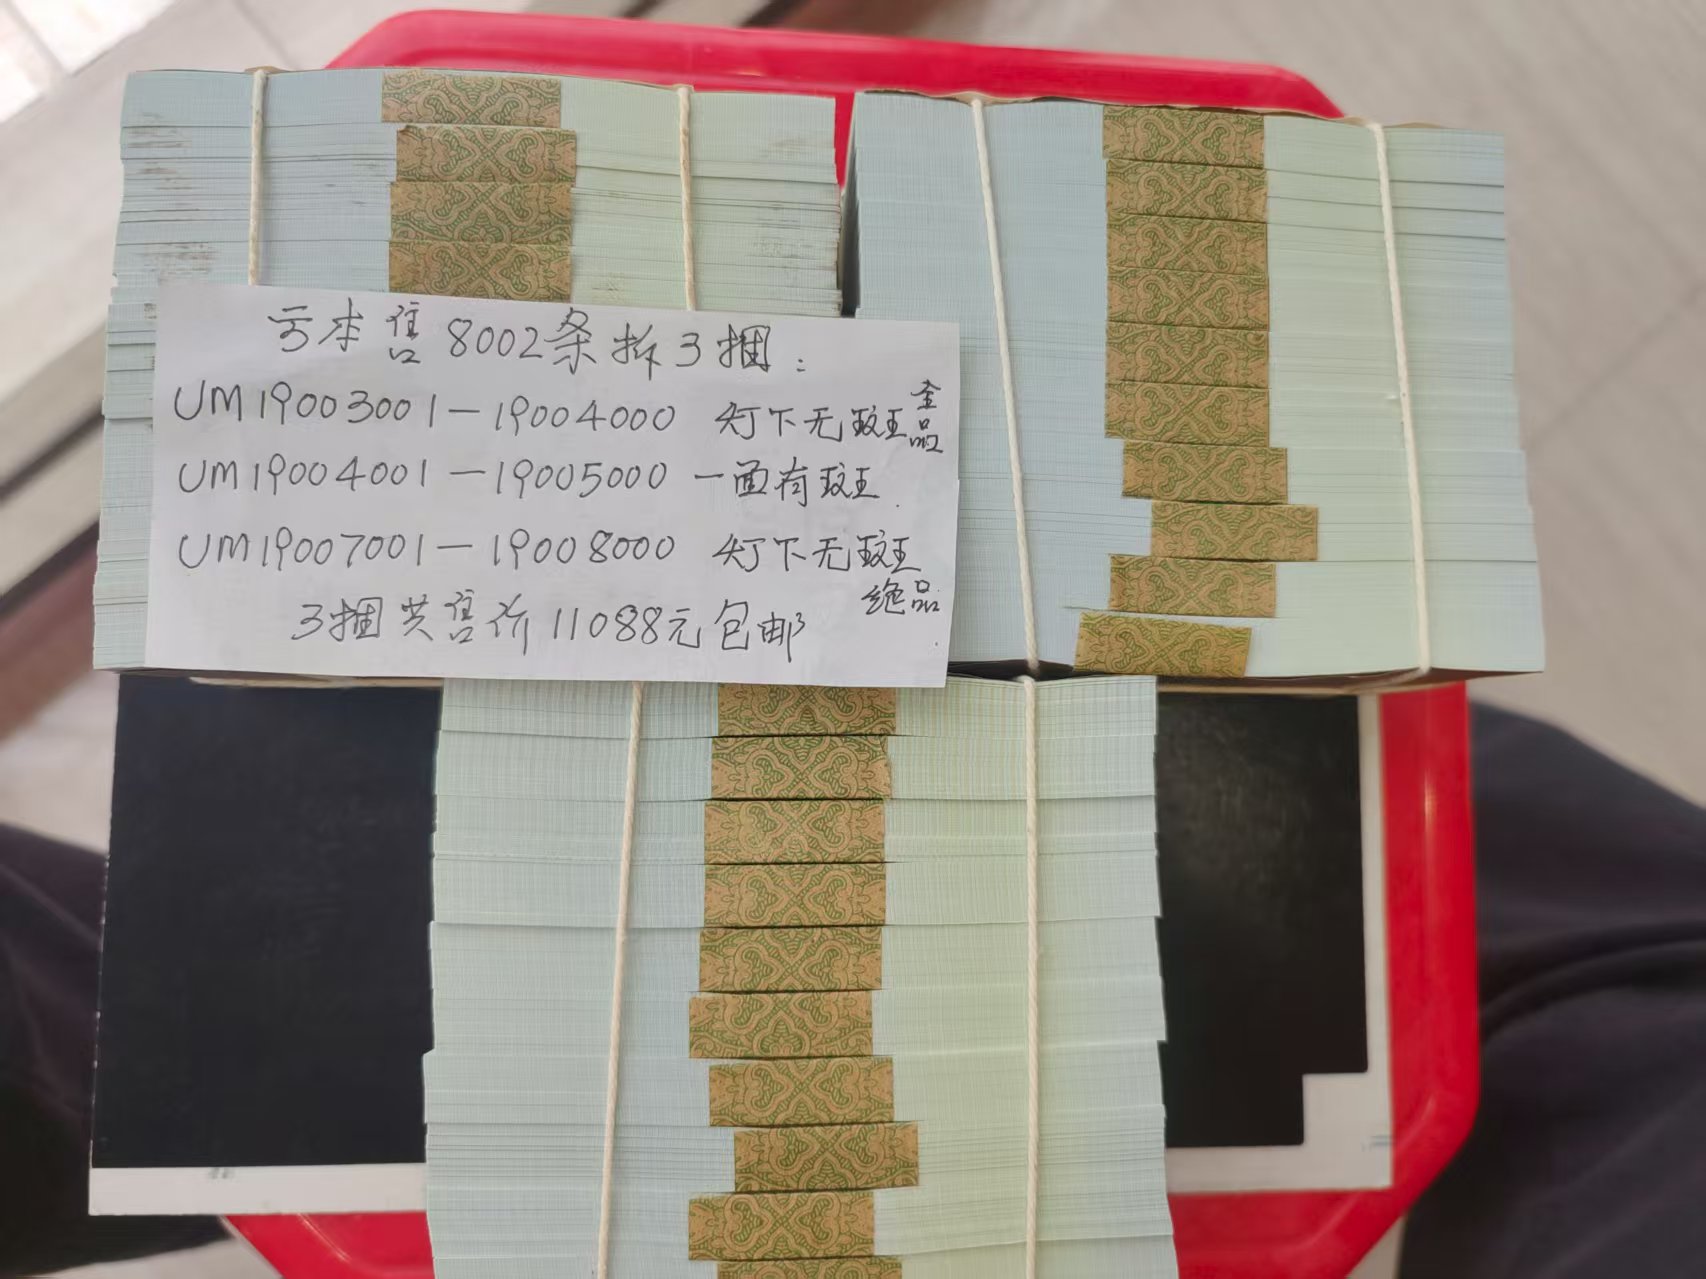 亏本售8002条拆3捆:
UM19003001-19004000 灯下无斑全品
UM19004001-19005000 一面有斑.
UM19007001-19008000 灯下无斑绝品.
3捆共售价11088元包邮